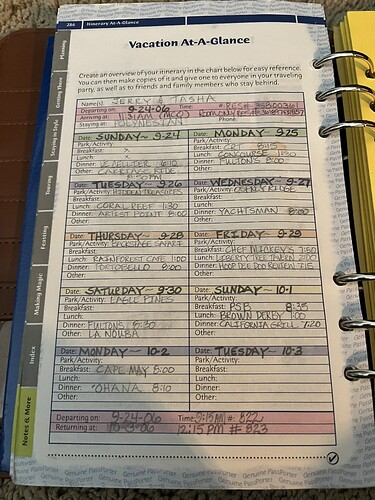 286 Itinerary At-A-Glance
Vacation At-A-Glance
Create an overview of your itinerary in the chart below for easy reference.
You can then make copies of it and give one to everyone in your traveling
party, as well as to friends and family members who stay behind.
Name(s): JERRY & TASHA
Departing on: 9-24-06 Time
Arriving at: 11:31AM (MCO)
Staying at:
Date: SUNDAY~ 9-24 Date: MONDAY~ 9-25
Park/Activity: Park/Activity:
Breakfast: Breakfast: CRT 8:45
Lunch: Lunch: CONCOURSE 1:30
Dinner: LE CELLIER 6:10 Dinner: FULTON'S 8:00
Other: CARRIAGE RIDE Other:
8:30 PM
Date: TUESDAY~ 9-26 Date: WEDNESDAY~ 9-27
Park/Activity: HIDDEN TREASURES Park/Activity:
Breakfast: Breakfast:
Lunch: CORAL REEF 1:30 Lunch:
Dinner: ARTIST POINT 8:00 Dinner: YACHTSMAN 8:00
Other: Other:
Date: THURSDAY~ 9-28 Date: FRIDAY~ 9-29
Park/Activity: BACKSTAGE SAFARI Park/Activity:
Breakfast: Breakfast: CHEF MICKEY'S 7:50
Lunch: RAINFOREST CAFE 1:00 Lunch: LIBERTY TREE TAVERN 2:00
Dinner: PORTOBELLO 8:00 Dinner: HOOP DEE DOO REVIEW 7:15
Other: Other:
Date: SATURDAY~ 9-30 Date: SUNDAY~ 10-1
Park/Activity: EAGLE PINES Park/Activity:
Breakfast: Breakfast: PSB 8:35
Lunch: Lunch: BROWN DERBY 1:00
Dinner: FULTONS 8:30 Dinner: CALIFORNIA GRILL 7:20
Other: LA NOUBA Other:
Date: MONDAY~ 10-2 Date: TUESDAY~ 10-3
Park/Activity: Park/Activity:
Breakfast: CAPE MAY 8:00 Breakfast:
Lunch: Lunch:
Dinner: 'OHANA 8:10 Dinner:
Other: Other:
Departing on: 9-24-06 Time: 9:15AM #: 822
Returning at: 10-3-06 12:15 PM # 823
Planning
Getting There
Staying in Style
Touring
Feasting
Making Magic
Index
Notes & More
Genuine PassPorter